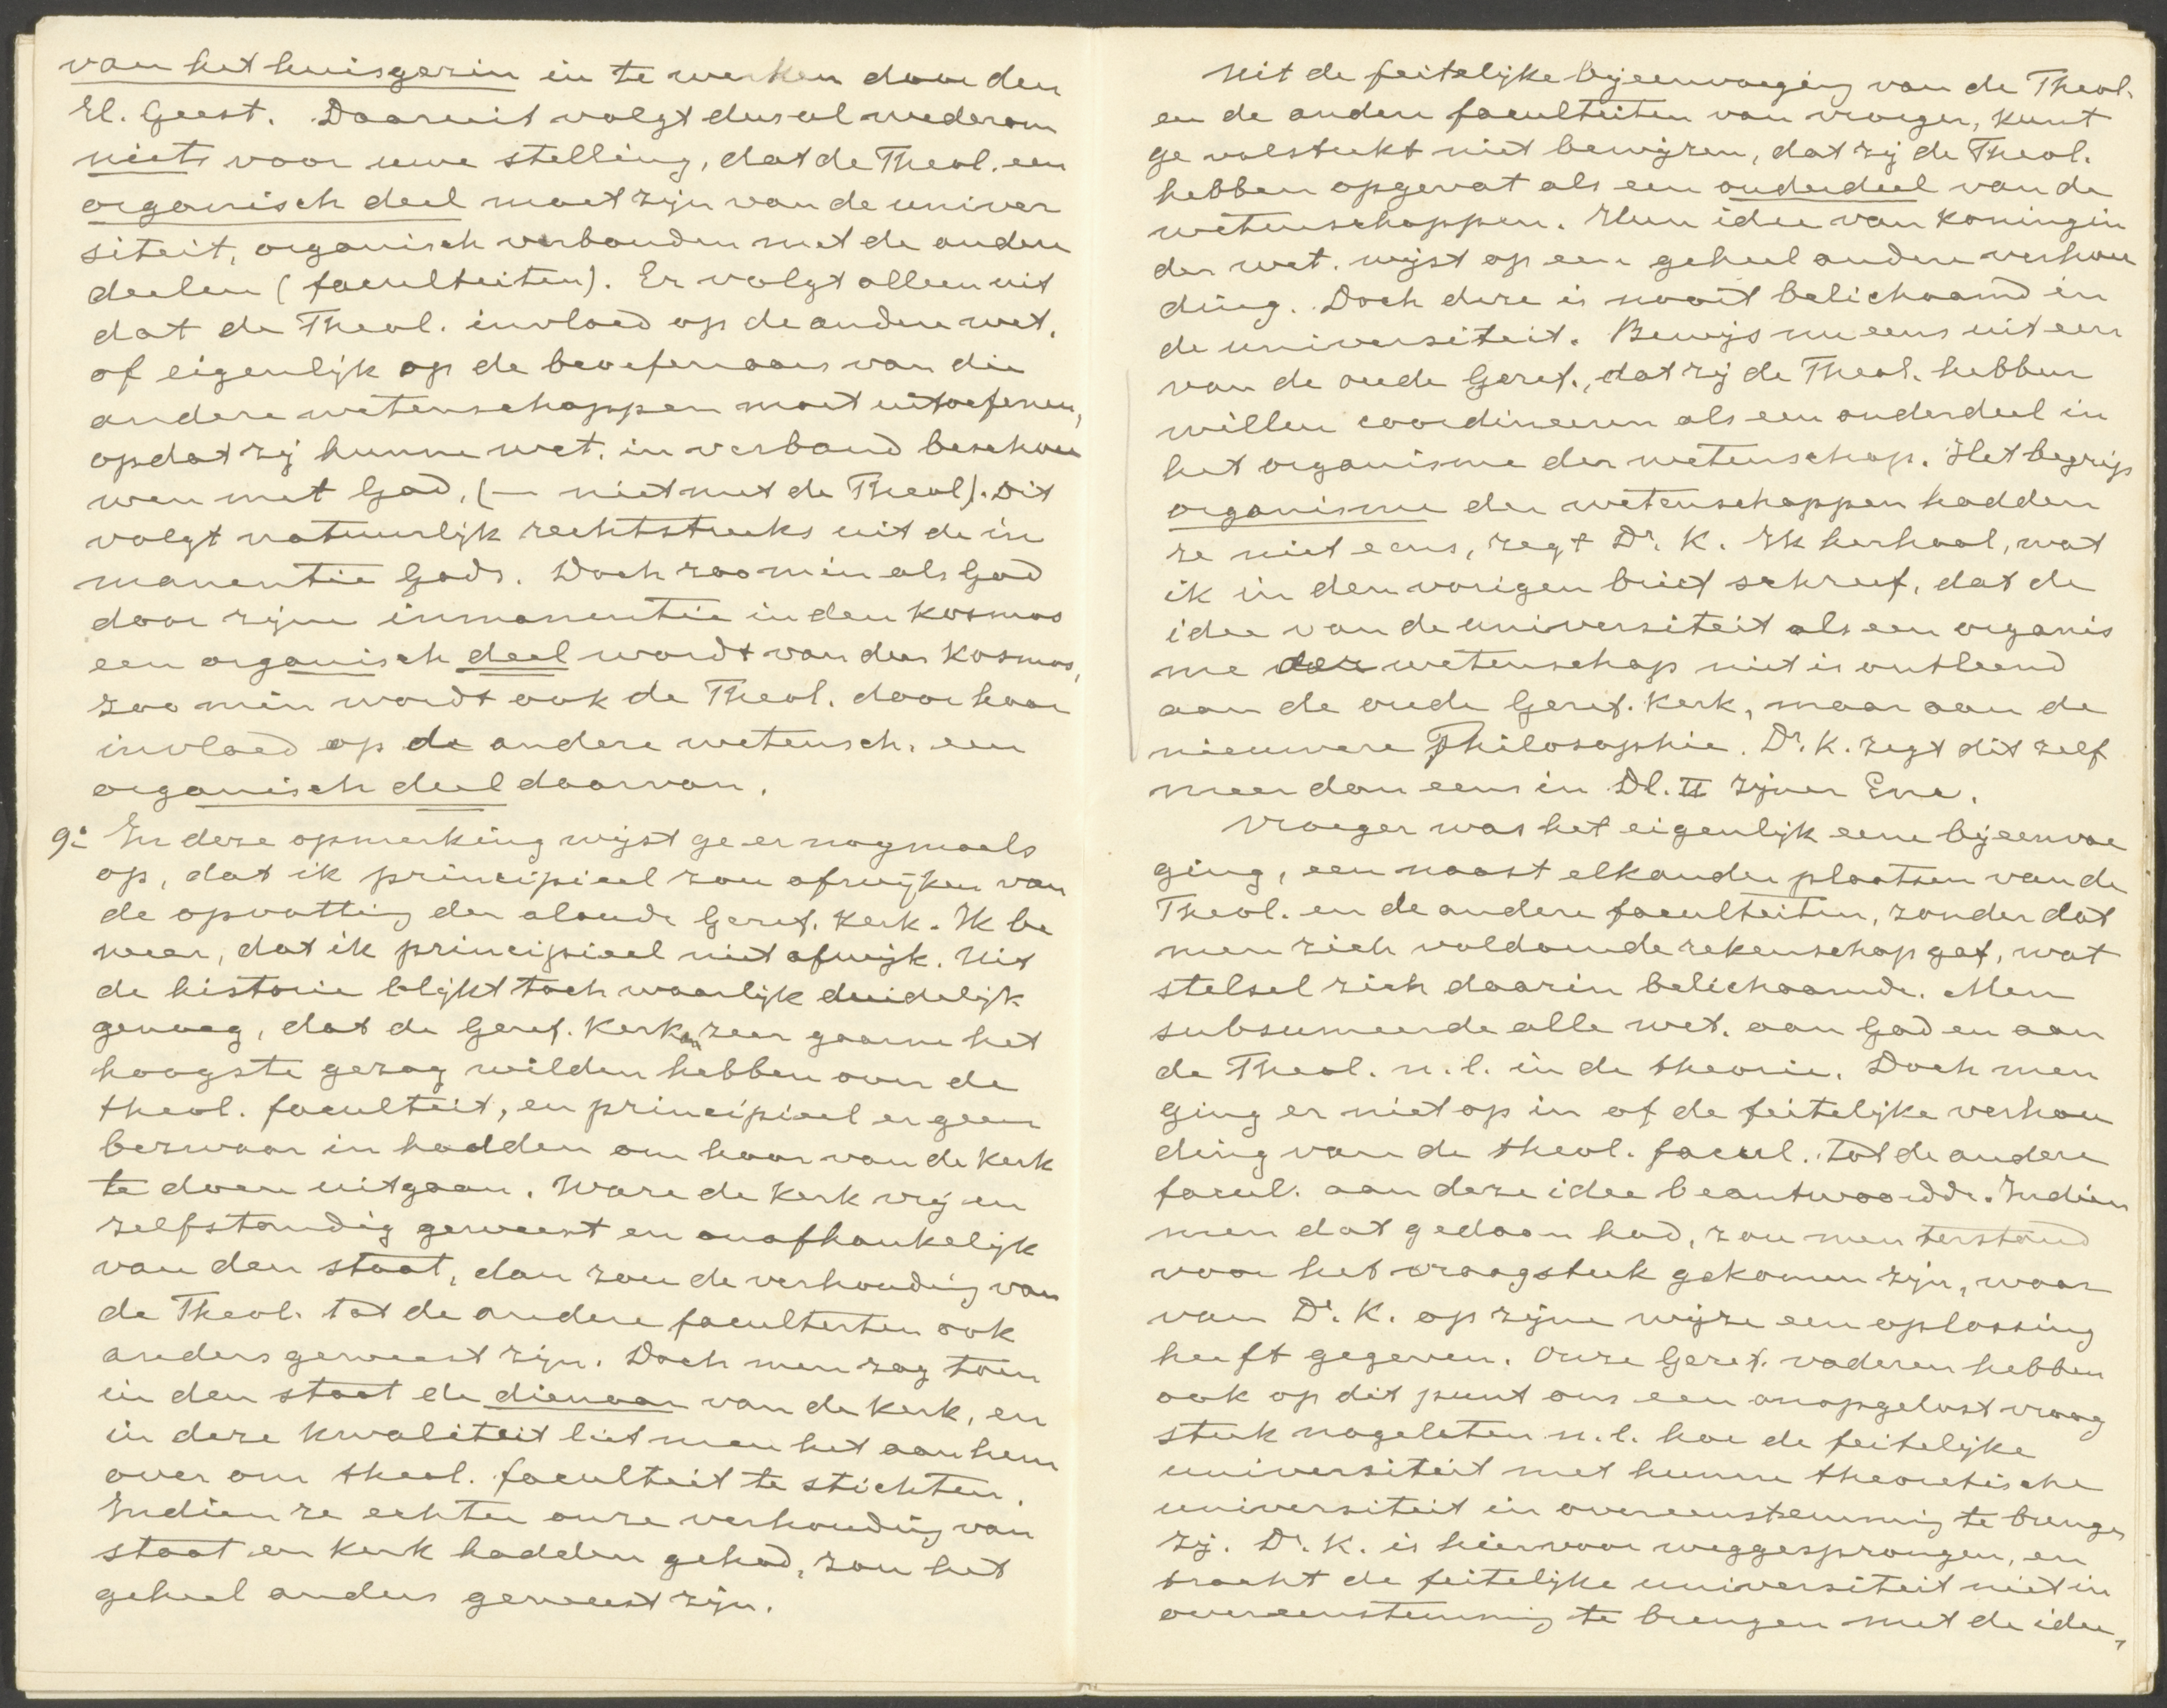 van het huisgezin in te werken door den
H. Geest. Daaruit volgt dus al wederom
niets voor uwe stelling, dat de Theol. een
organisch deel moet zijn van de univer
siteit, organisch verbonden met de andere
deelen (faculteiten). Er volgt alleen uit
dat de Theol. invloed op de andere wet.
of eigenlijk op de beoefenaars van die
andere wetenschappen moet uitoefenen,
opdat zij hunne wet. in verband beschou
wen met God, (— niet met de Theol). Dit
volgt natuurlijk rechtstreeks uit de in
manentie Gods. Doch zoo min als God
door zijne inmanentie in den kosmos
een organisch deel wordt van den kosmos,
zoo min wordt ook de Theol. door haar
invloed op de andere wetensch. een
organisch deel daarvan.
9º In deze opmerking wijst ge er nogmaals
op, dat ik principieel zou afwijken van
de opvatting der aloude Geref. Kerk. Ik be
weer, dat ik principieel niet afwijk. Uit
de historie blijkt toch waarlijk duidelijk
genoeg, dat de Geref. Kerken zeer gaarne het
hoogste gezag wilden hebben over de
theol. faculteit, en principieel er geen
bezwaar in hadden om haar van de Kerk
te doen uitgaan. Ware de Kerk vrij en
zelfstandig geweest en onafhankelijk
van den staat, dan zou de verhouding van
de Theol. tot de andere faculteiten ook
anders geweest zijn. Doch men zag toen
in den staat de dienaar van de Kerk, en
in deze kwaliteit liet men het aan hem
over om theol. faculteit te stichten.
Indien ze echter onze verhouding van
staat en Kerk hadden gehad, zou het
geheel anders geweest zijn.
Uit de feitelijke bijeenvoeging van de Theol.
en de andere faculteiten van vroeger, kunt
ge volstrekt niet bewijzen, dat zij de Theol.
hebben opgevat als een onderdeel van de
wetenschappen. Hun idee van Koningin
der wet. wijst op een geheel andere verhou
ding. Doch deze is nooit belichaamd in
de universiteit. Bewijs nu eens uit een
van de oude Geref., dat zij de Theol. hebben
willen coordineeren als een onderdeel in
het organisme der wetenschap. Het begrip
organisme der wetenschappen hadden
ze niet eens, zegt Dr. K. Ik herhaal, wat
ik in den vorigen brief schreef, dat de
idee van de universiteit als een organis
me der wetenschap niet is ontleend
aan de oude Geref. Kerk, maar aan de
nieuwere Philosophie. Dr. K. zegt dit zelf
meer dan eens in Dl. II zijner Enc.
Vroeger was het eigenlijk eene bijeenvoe
ging, een naast elkander plaatsen van de
Theol. en de andere faculteiten, zonder dat
men zich voldoende rekenschap gaf, wat
stelsel zich daarin belichaamde. Men
subsumeerde alle wet. aan God en aan
de Theol. n.l. in de theorie. Doch men
ging er niet op in of de feitelijke verhou
ding van de theol. facul. tot de andere
facul. aan deze idee beantwoordde. Indien
men dat gedaan had, zou men terstond
voor het vraagstuk gekomen zijn, waar
van Dr. K. op zijne wijze een oplossing
heeft gegeven. Onze Geref. vaderen hebben
ook op dit punt ons een onopgelost vraag
stuk nagelaten n.l. hoe de feitelijke
universiteit met hunne theoretische
universiteit in overeenstemming te brengen
zij. Dr. K. is hiervoor weggesprongen, en
tracht de feitelijke universiteit niet in
overeenstemming te brengen met de idee,